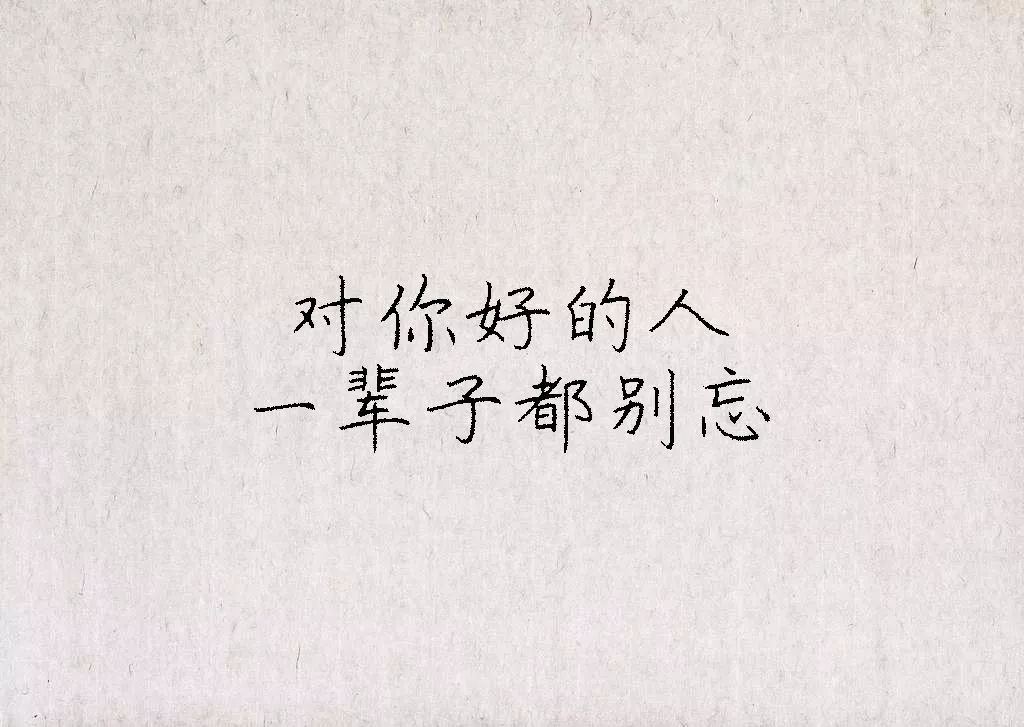 对你好的人
一辈子都别忘